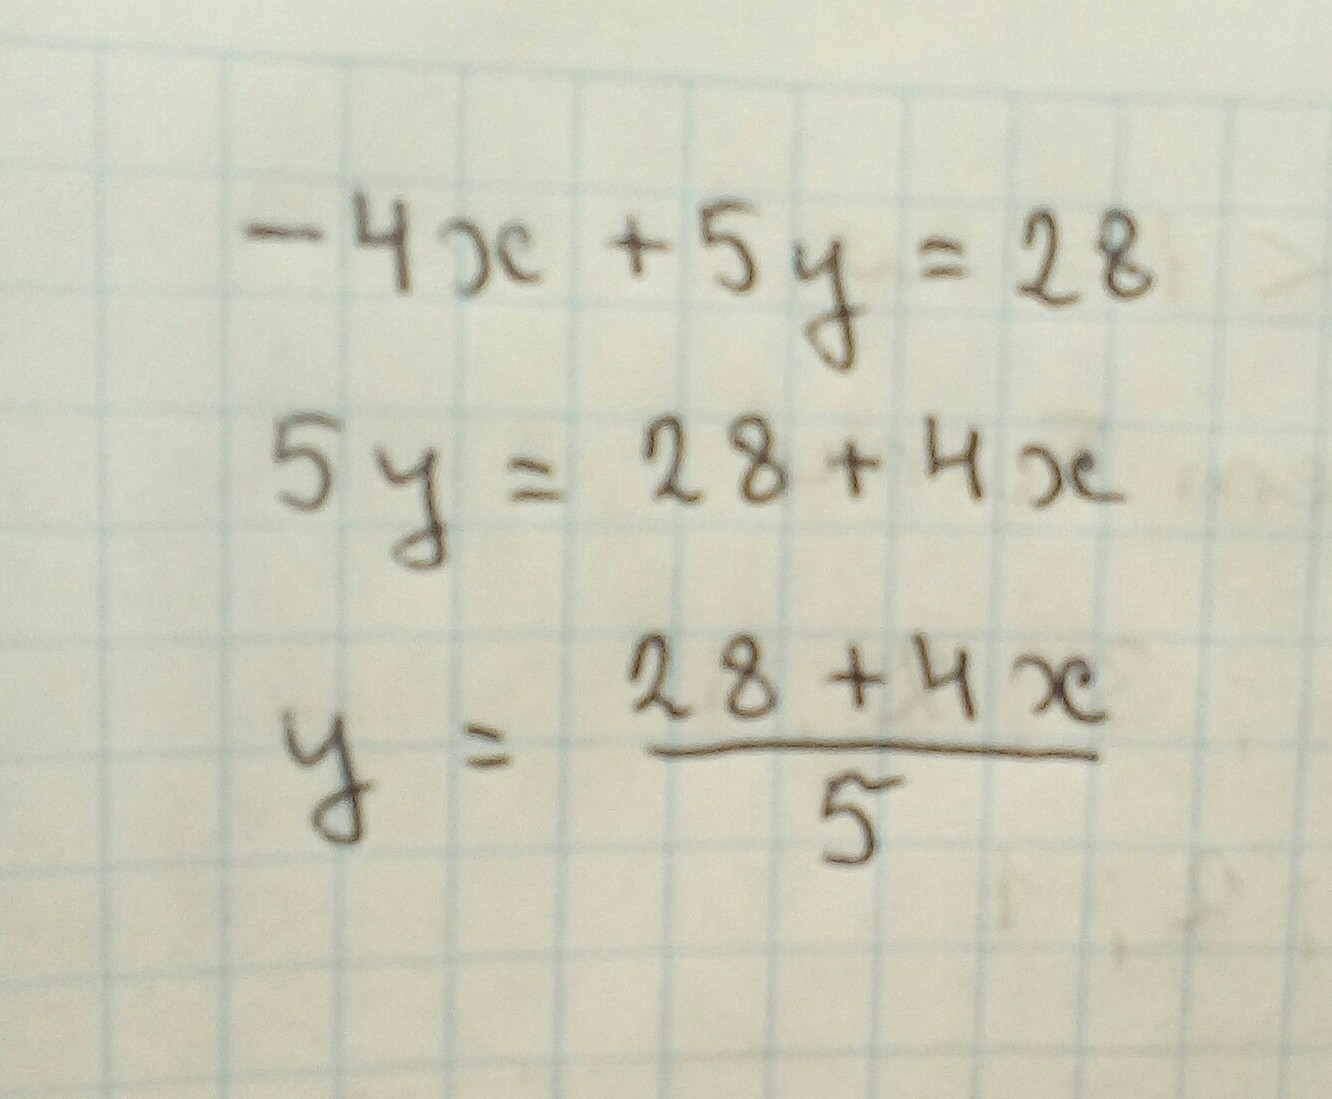 -4x + 5y = 28
5y = 28 + 4x
y = \frac{28 + 4x}{5}